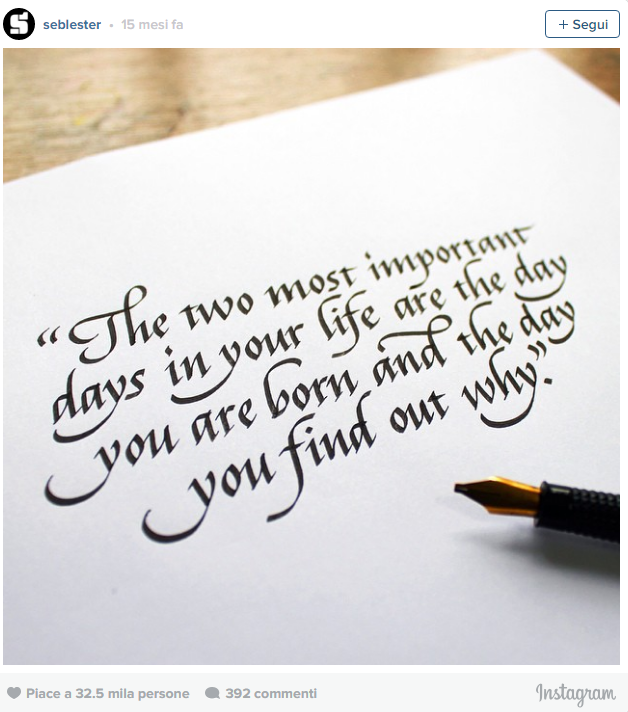 seblester • 15 mesi fa
+ Segui
“The two most important
days in your life are the day
you are born and the day
you find out why”.
Piace a 32.5 mila persone 392 commenti
Instagram